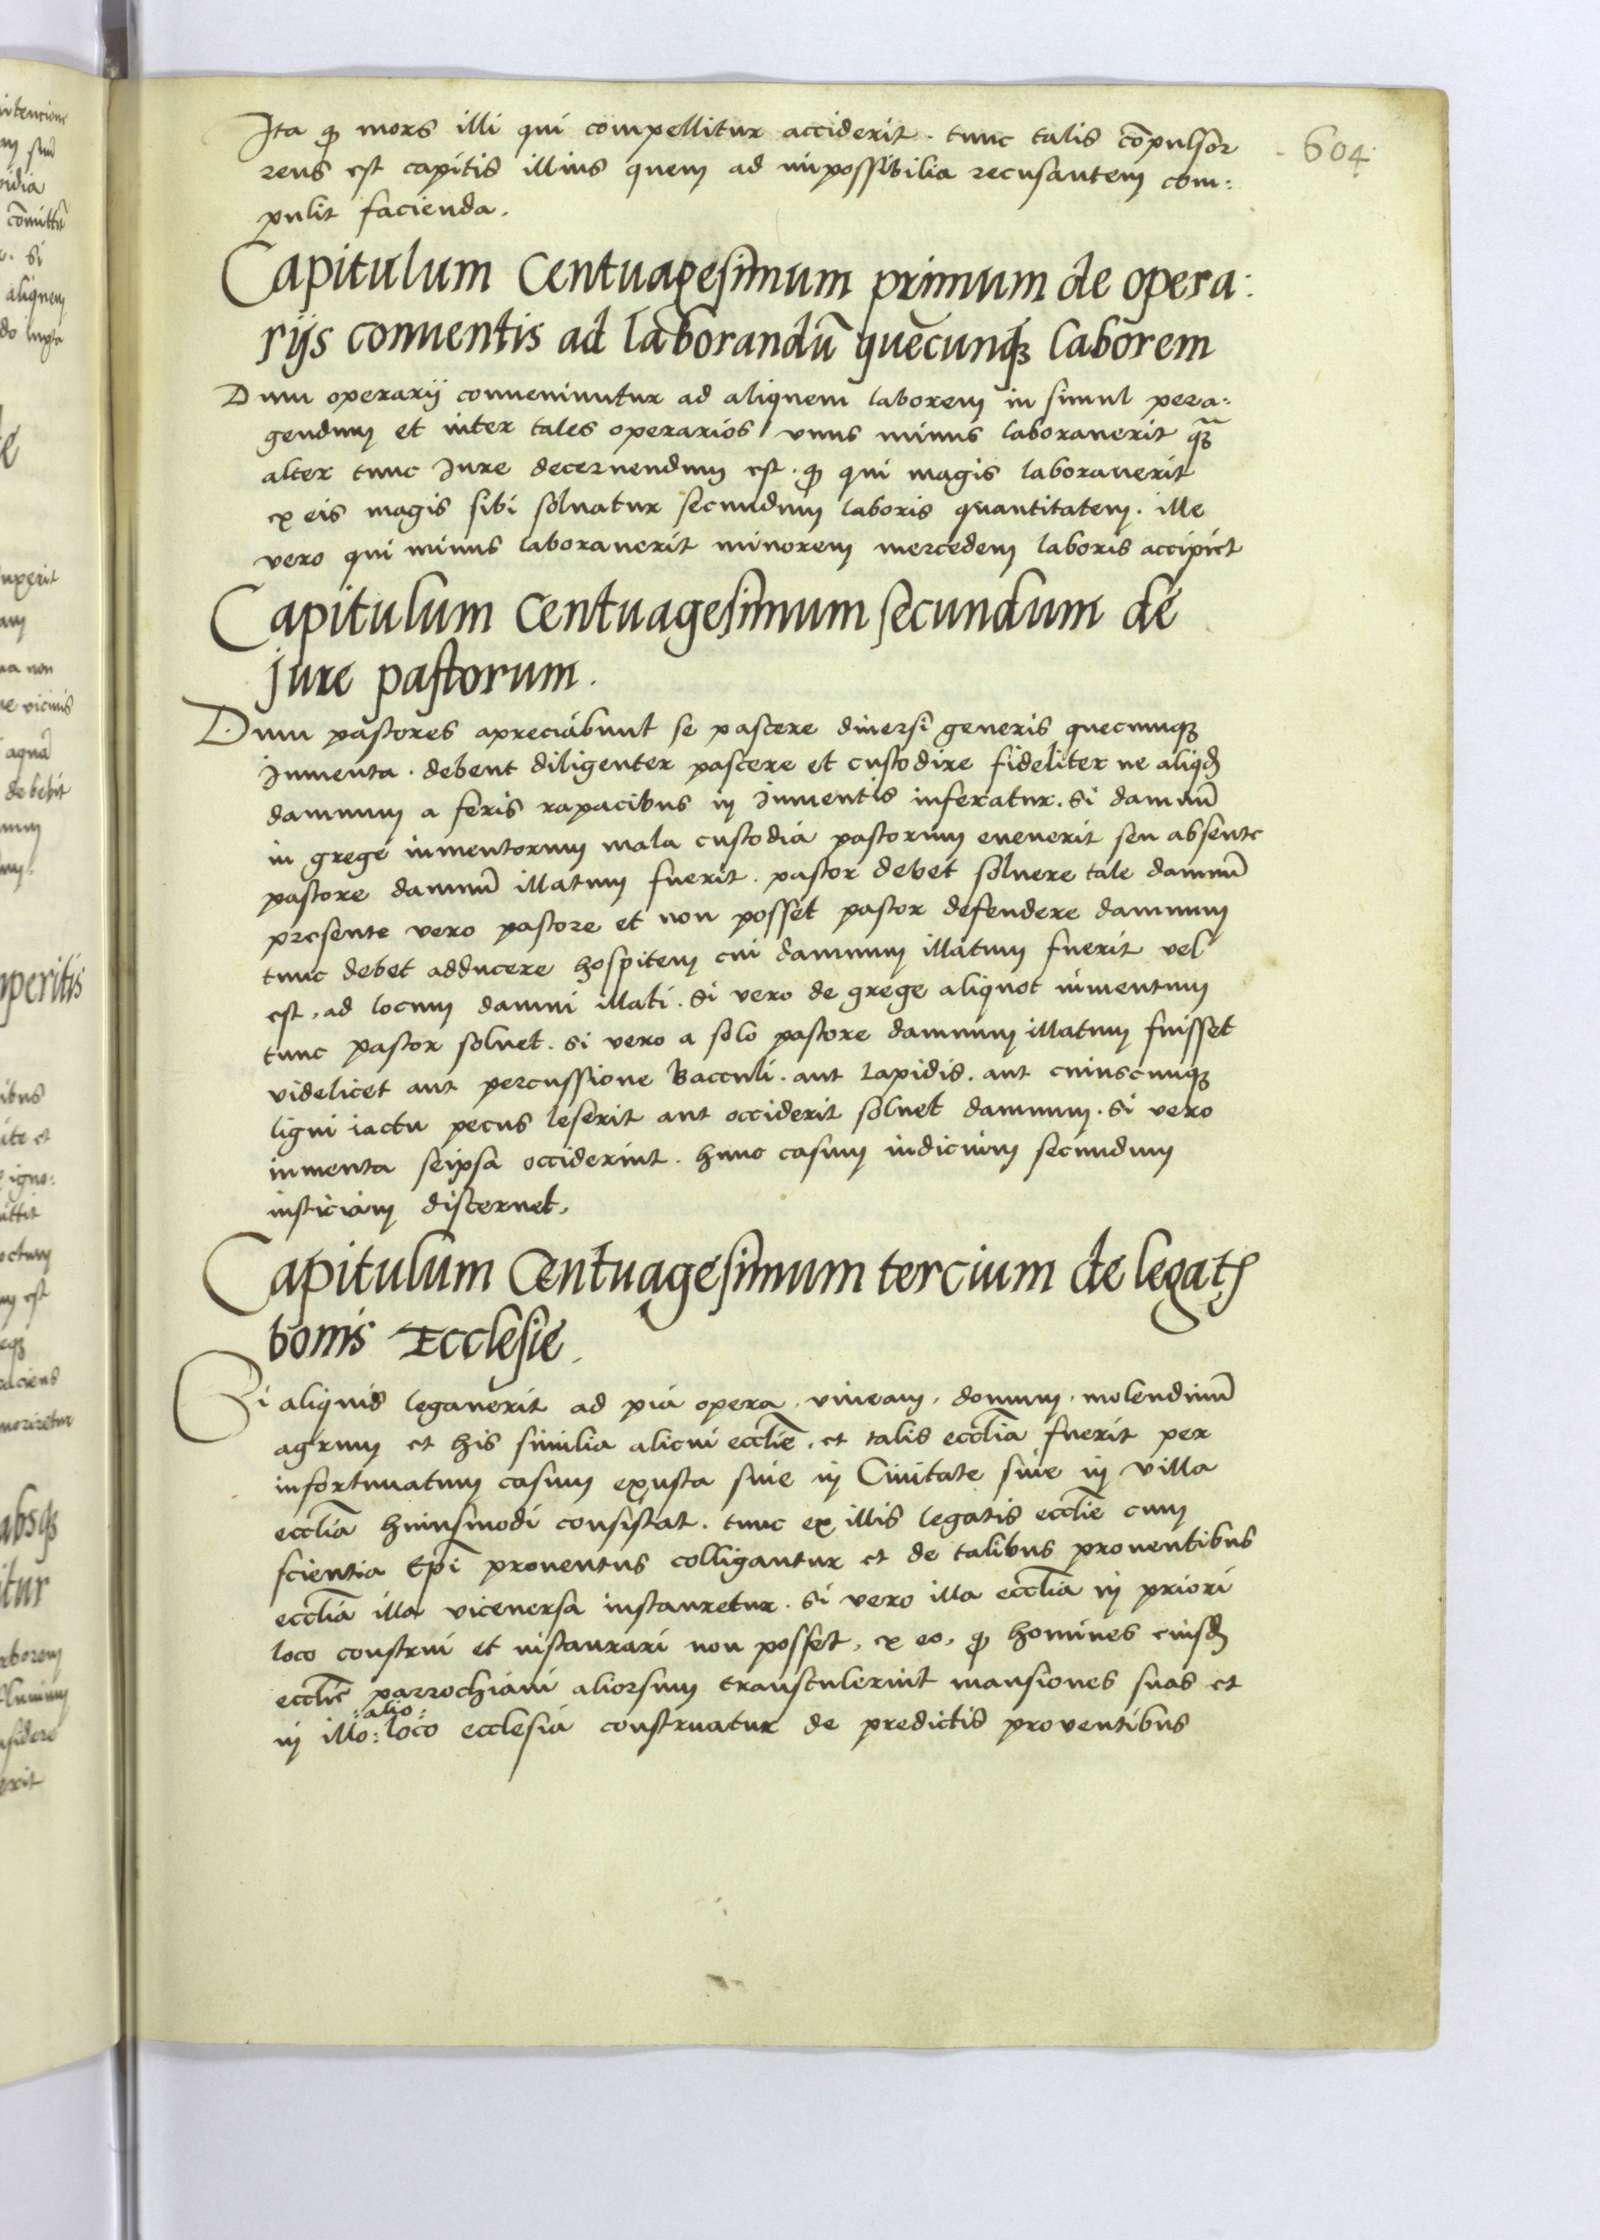 604
Ita ꝙ mors illi qui compellitur acciderit. tunc talis cōpulsor
reus est capitis illius quem ad impossibilia recusantem com:
pulit facienda.
Capitulum Centuagesimum primum de opera:
rijs conuentis ad laborandū quēcunqꝫ laborem
Dum operarij conueniuntur ad aliquem laborem in simul pera:
gendum et inter tales operarios vnus minus laborauerit qꝫ̄
alter tunc Iure decernendum est. ꝙ qui magis laborauerit
ex eis magis sibi soluatur secundum laboris quantitatem. ille
vero qui minus laborauerit minorem mercedem laboris accipiet
Capitulum Centuagesimum secundum de
Jure pastorum.
Dum pastores apreciabunt se pascere diuersi generis quecumqꝫ
Iumenta. debent diligenter pascere et custodire fideliter ne aliqđ
damnum a feris rapacibus in Iumentis inferatur. Si damnū
in grege iumentorum mala custodia pastorum euenerit seu absente
pastore damnū illatum fuerit. pastor debet soluere tale damnū
presente vero pastore et non posset pastor defendere damnum
tunc debet adducere hospitem cui damnum illatum fuerit vel
est, ad locum damni illati. Si vero de grege aliquot iumentum
tunc pastor soluet. Si vero a solo pastore damnum illatum fuisset
videlicet aut percussione Bacculi. aut Lapidis. aut cuiuscumqꝫ
ligni iactu pecus leserit aut occiderit soluet damnum. Si vero
iumenta seipsa occiderint. hunc casum iudicium secundum
iusticiam discernet.
Capitulum Centuagesimum tercium de legatꝭ
bonis Ecclesie.
Si aliquid legauerit ad pia opera. vineam. domum. molendinū
agrum et his similia alicui eccliē. et talis eccliā fuerit per
infortunatum casum exusta siue in Ciuitate siue in villa
eccliā huiusmodi consistat. tunc ex illis legatis eccliē cum
scientia Ep̄i prouentus colligantur et de talibus prouentibus
eccliā illa viceuersa instauretur. Si vero illa eccliā in priori
loco construi et instaurari non posset, ex eo, ꝙ homines eiusđ
eccliē parrochiani aliorsum transtulerint mansiones suas et
:alio:
in illo: loco ecclesia construatur de predictis proventibus